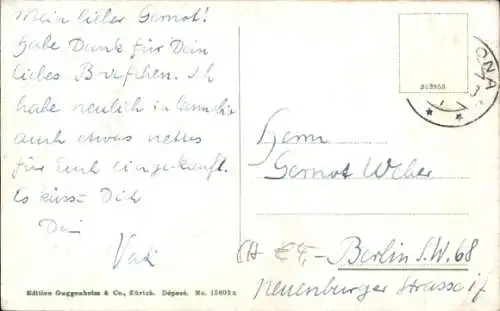 Mein lieber Gernot!
habe Dank für Dein
liebes Briefchen. Ich
habe neulich in
auch etwas nettes
für Euch eingekauft.
Es küsst Dich
Dein
Vati
Edition Guggenheim & Co., Zürich. Déposé. No. 15602
313953
ONA
Herrn
Gernot Weber
Berlin S.W. 68
Neuenburger Strasse 17